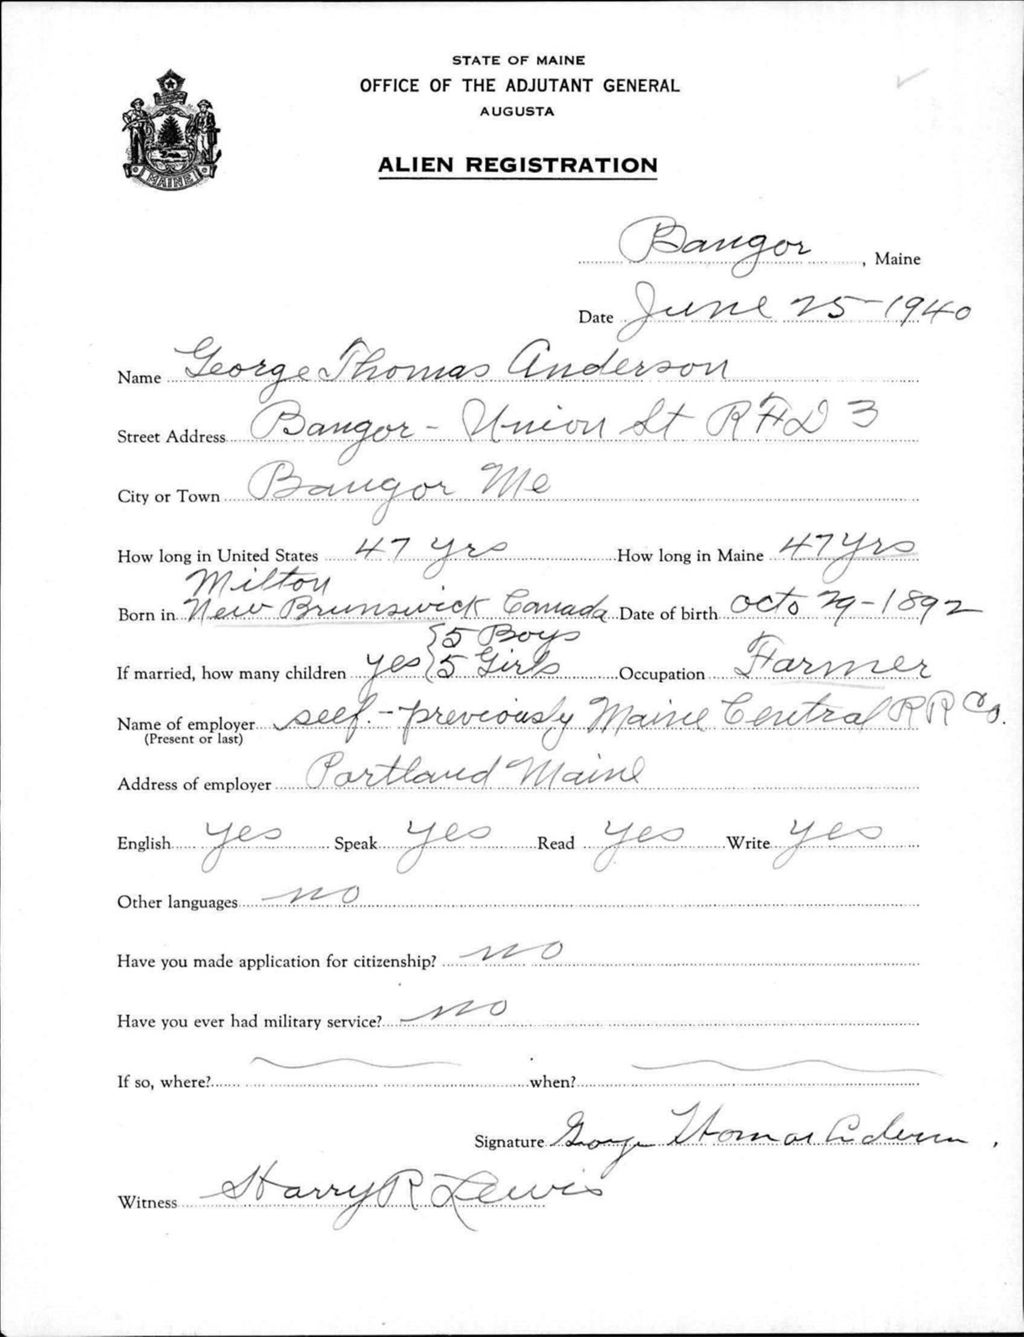 STATE OF MAINE
OFFICE OF THE ADJUTANT GENERAL
AUGUSTA
MAINE
ALIEN REGISTRATION
Bangor, Maine
Date June 25-1940
Name George Thomas Anderson
Street Address Bangor - Union St RFD 3
City or Town Bangor Me
How long in United States 47 yrs How long in Maine 47 yrs
Milton
Born in New Brunswick Canada Date of birth Octo 29-1892
{5 Boys
If married, how many children yes {5 Girls Occupation Farmer
Name of employer self. - previously Maine Central RR Co.
(Present or last)
Address of employer Portland Maine
English yes Speak yes Read yes Write yes
Other languages no
Have you made application for citizenship? no
Have you ever had military service? no
If so, where? when?
Signature George Thomas Anderson
Witness Harry R Lewis